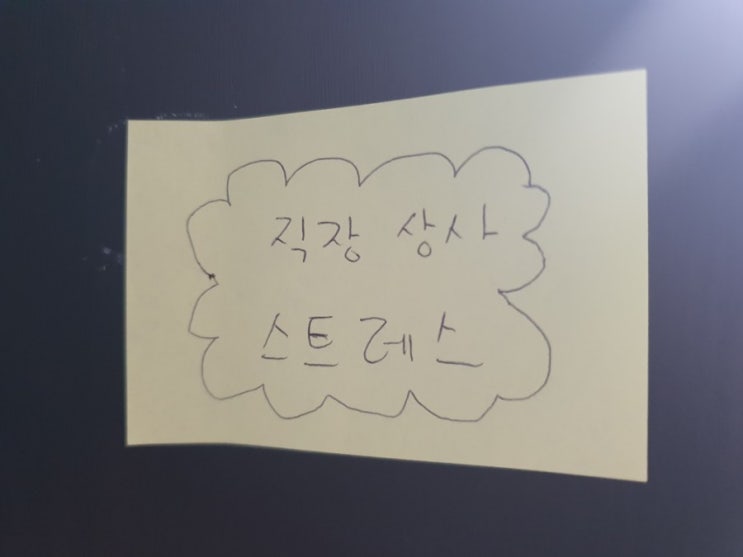 직장 상사
스트레스